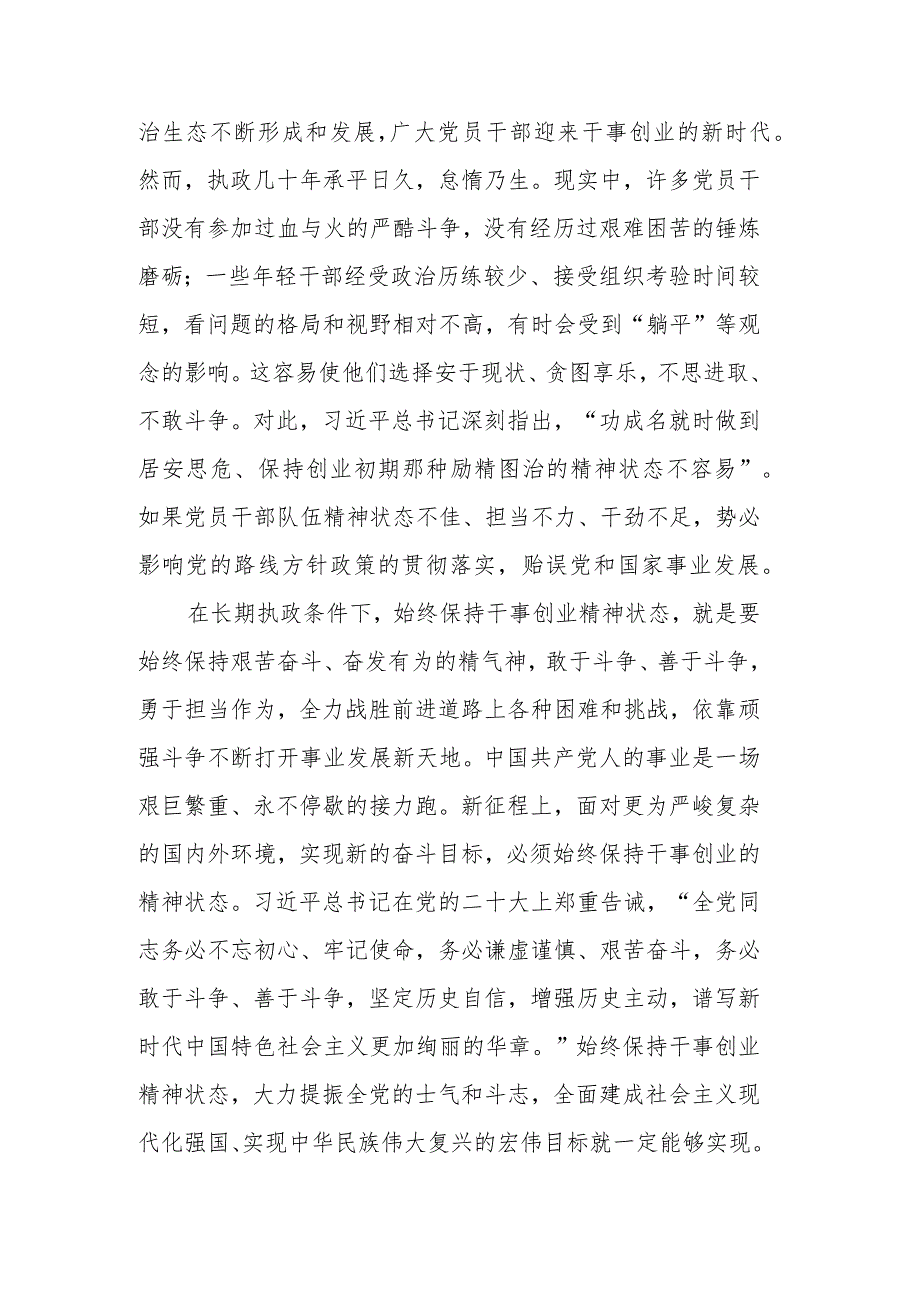 治生态不断形成和发展，广大党员干部迎来干事创业的新时代。
然而，执政几十年承平日久，怠惰乃生。现实中，许多党员干
部没有参加过血与火的严酷斗争，没有经历过艰难困苦的锤炼
磨砺；一些年轻干部经受政治历练较少、接受组织考验时间较
短，看问题的格局和视野相对不高，有时会受到“躺平”等观
念的影响。这容易使他们选择安于现状、贪图享乐，不思进取、
不敢斗争。对此，习近平总书记深刻指出，“功成名就时做到
居安思危、保持创业初期那种励精图治的精神状态不容易”。
如果党员干部队伍精神状态不佳、担当不力、干劲不足，势必
影响党的路线方针政策的贯彻落实，贻误党和国家事业发展。
在长期执政条件下，始终保持干事创业精神状态，就是要
始终保持艰苦奋斗、奋发有为的精气神，敢于斗争、善于斗争，
勇于担当作为，全力战胜前进道路上各种困难和挑战，依靠顽
强斗争不断打开事业发展新天地。中国共产党人的事业是一场
艰巨繁重、永不停歇的接力跑。新征程上，面对更为严峻复杂
的国内外环境，实现新的奋斗目标，必须始终保持干事创业的
精神状态。习近平总书记在党的二十大上郑重告诫，“全党同
志务必不忘初心、牢记使命，务必谦虚谨慎、艰苦奋斗，务必
敢于斗争、善于斗争，坚定历史自信，增强历史主动，谱写新
时代中国特色社会主义更加绚丽的华章。”始终保持干事创业
精神状态，大力提振全党的士气和斗志，全面建成社会主义现
代化强国、实现中华民族伟大复兴的宏伟目标就一定能够实现。